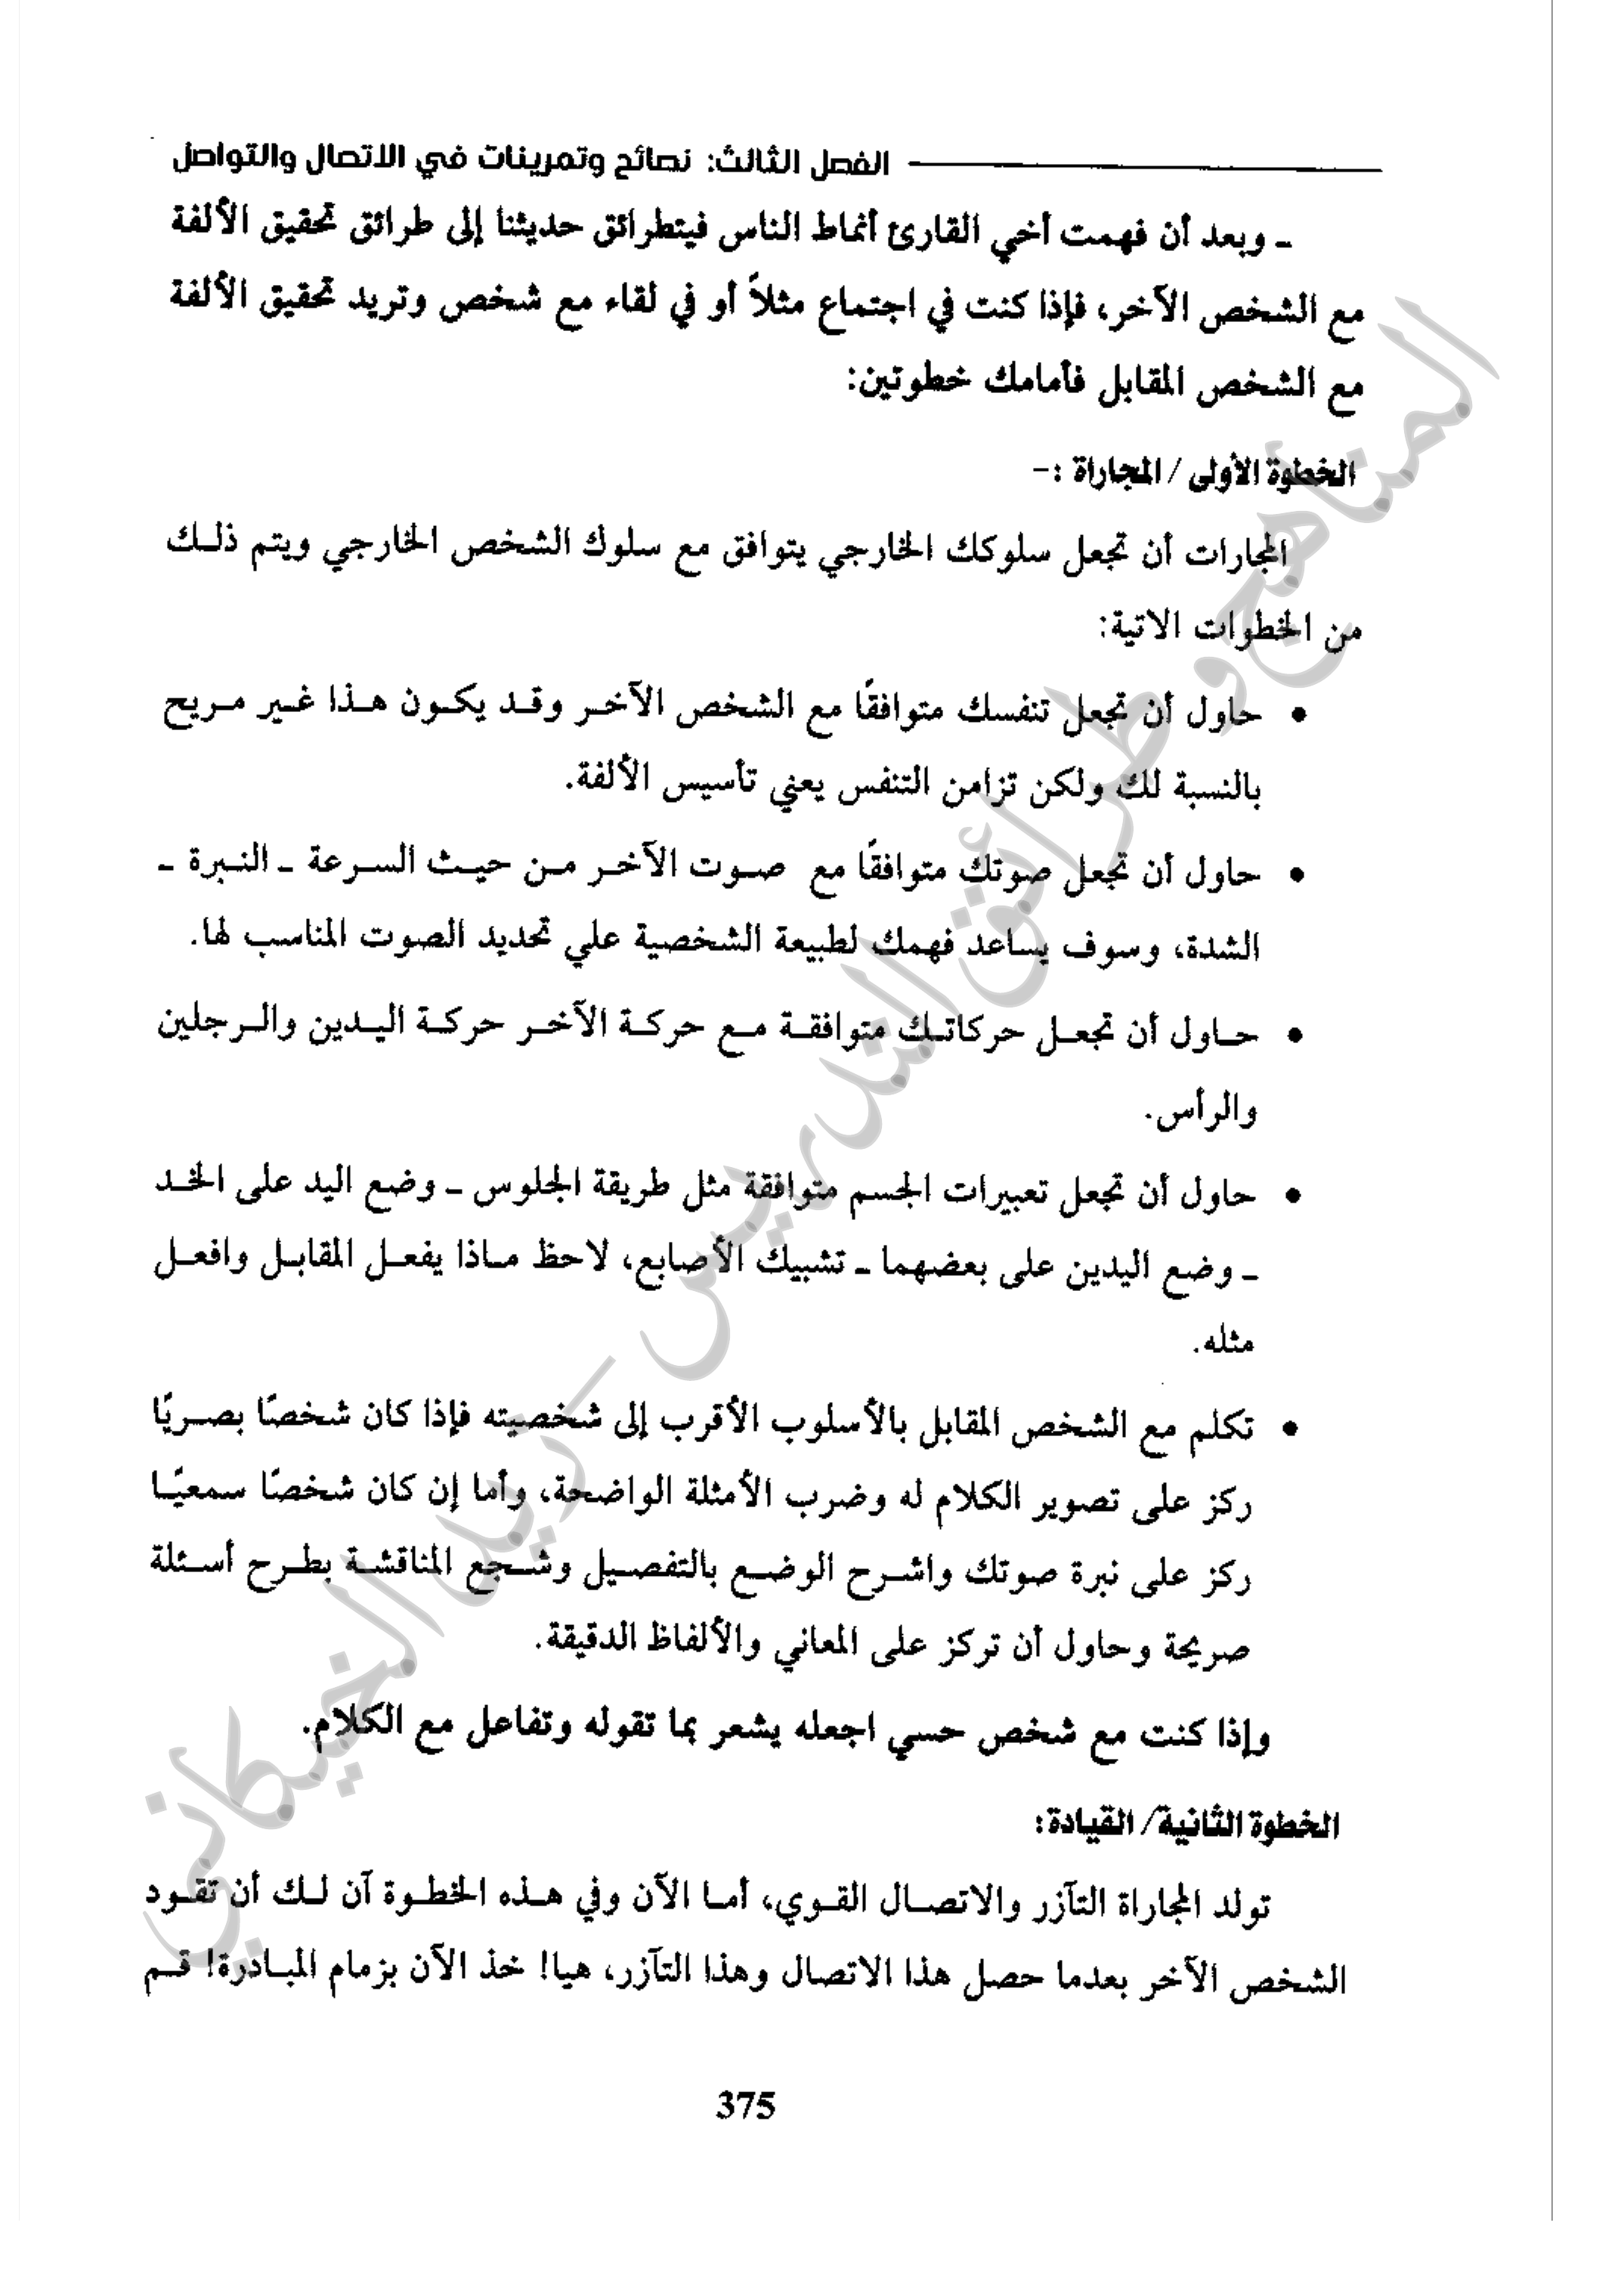 الفصل الثالث: نصائح وتمرينات في الاتصال والتواصل
ـ وبعد أن فهمت أخي القارئ أنماط الناس فيتطرائق حديثنا إلى طرائق تحقيق الألفة
مع الشخص الآخر، فإذا كنت في اجتماع مثلاً أو في لقاء مع شخص وتريد تحقيق الألفة
مع الشخص المقابل فأمامك خطوتين:
الخطوة الأولى / المجاراة :-
المجارات أن تجعل سلوكك الخارجي يتوافق مع سلوك الشخص الخارجي ويتم ذلك
من الخطوات الاتية:
• حاول أن تجعل تنفسك متوافقًا مع الشخص الآخر وقد يكون هذا غير مريح
بالنسبة لك ولكن تزامن التنفس يعني تأسيس الألفة.
• حاول أن تجعل صوتك متوافقًا مع صوت الآخر من حيث السرعة ـ النبرة ـ
الشدة، وسوف يساعد فهمك لطبيعة الشخصية علي تحديد الصوت المناسب لها.
• حاول أن تجعل حركاتك متوافقة مع حركة الآخر حركة اليدين والرجلين
والرأس.
• حاول أن تجعل تعبيرات الجسم متوافقة مثل طريقة الجلوس ـ وضع اليد على الخد
ـ وضع اليدين على بعضهما ـ تشبيك الأصابع، لاحظ ماذا يفعل المقابل وافعل
مثله.
• تكلم مع الشخص المقابل بالأسلوب الأقرب إلى شخصيته فإذا كان شخصًا بصريًا
ركز على تصوير الكلام له وضرب الأمثلة الواضحة، وأما إن كان شخصًا سمعيًا
ركز على نبرة صوتك واشرح الوضع بالتفصيل وشجع المناقشة بطرح أسئلة
صريحة وحاول أن تركز على المعاني والألفاظ الدقيقة.
وإذا كنت مع شخص حسي اجعله يشعر بما تقوله وتفاعل مع الكلام.
الخطوة الثانية/ القيادة:
تولد المجاراة التآزر والاتصال القوي، أما الآن وفي هذه الخطوة آن لك أن تقود
الشخص الآخر بعدما حصل هذا الاتصال وهذا التآزر، هيا! خذ الآن بزمام المبادرة! قم
375
المناهج وطرائق التدريس – زيد الخيكاني